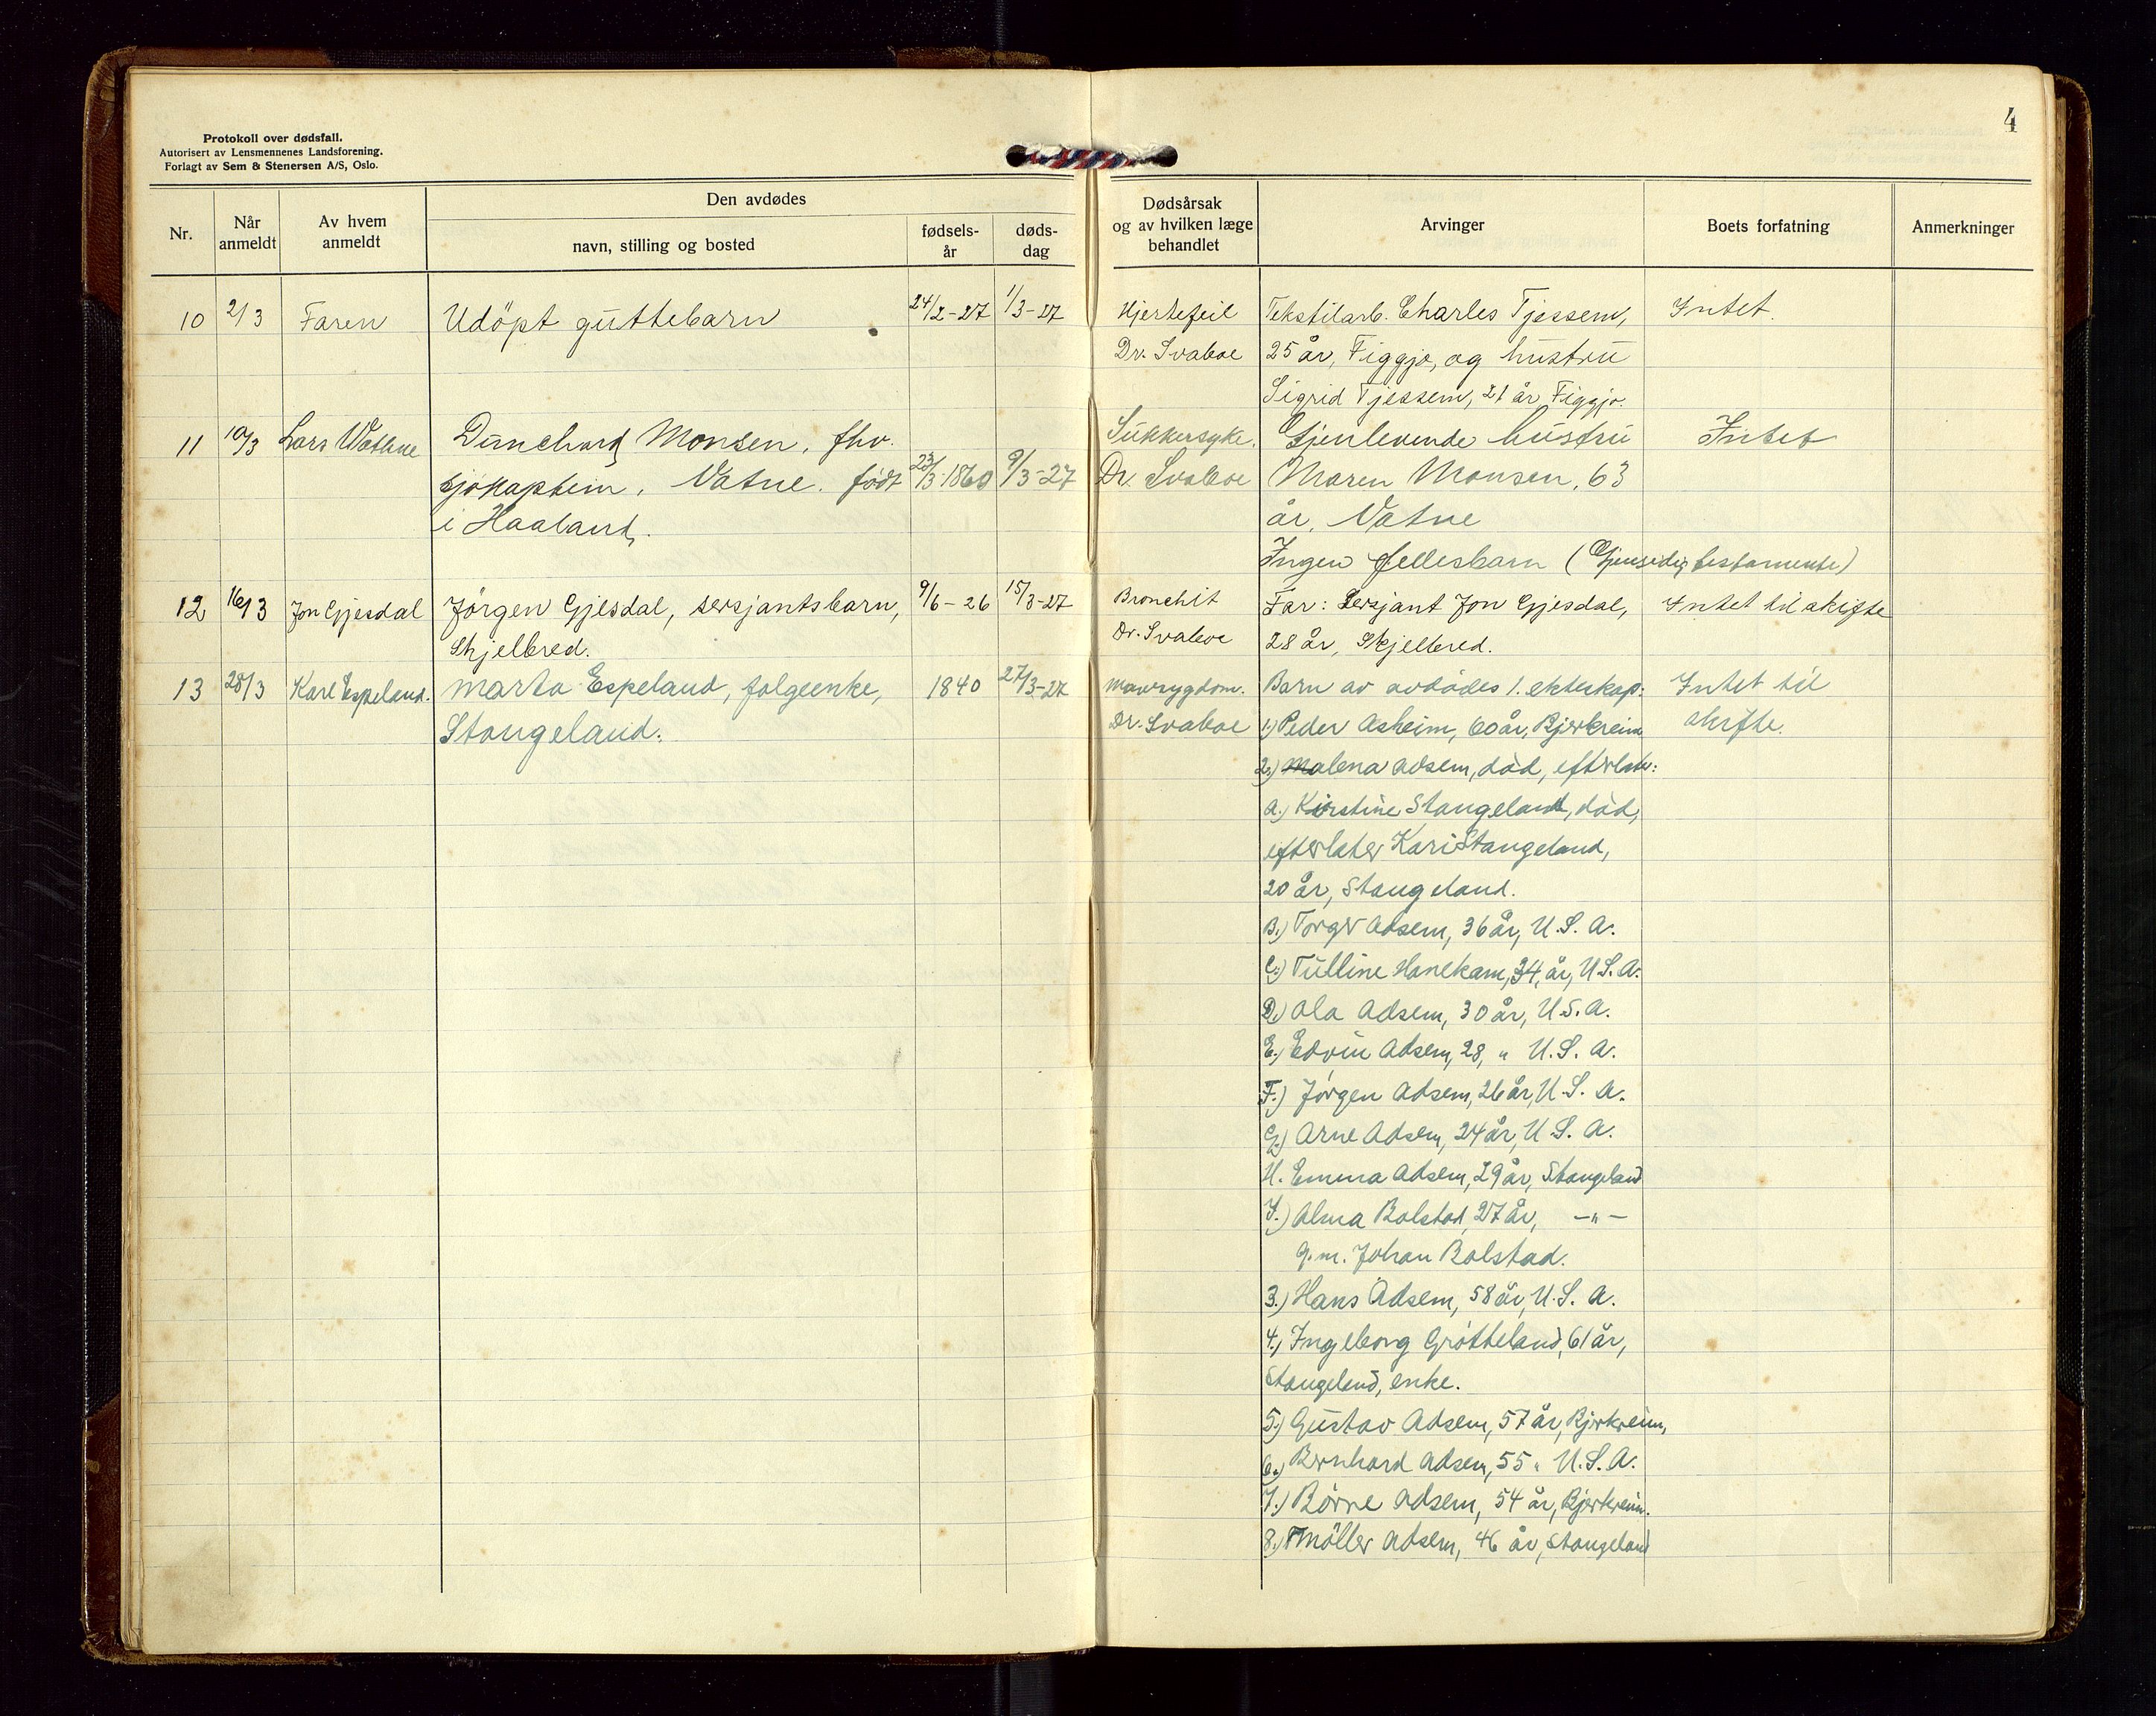 4
Protokoll over dødsfall.
Autorisert av Lensmennenes Landsforening.
Forlagt av Sem & Stenersen A/S, Oslo.
Nr.
Når anmeldt
Av hvem anmeldt
Den avdødes
navn, stilling og bosted
fødsels-år
døds-dag
Dødsårsak og av hvilken læge behandlet
Arvinger
Boets forfatning
Anmerkninger
10 2/3 Faren Udöpt guttebarn 24/2-27 1/3-27 Hjertefeil Tekstilarb. Charles Tjessem, Intet.
Dr. Svaboe 25 år, Figgjo, og hustru
Sigrid Tjessem, 21 år Figgjo.
11 10/3 Lars Watne Monsen, fhv. Sukkersyke. Gjenlevende hustru Intet
sjökaptein, Vatne. født 23/3-1860 9/3-27 Dr. Svaboe Maren Monsen, 63
i Haaland. år, Vatne
Ingen fellesbarn (Gjensidig testamente)
12 16/3 Jon Gjesdal Jörgen Gjesdal, sersjantsbarn, 9/6-26 15/3-27 Bronchit Far: Sersjant Jon Gjesdal, Intet til skifte
Skjelbred. Dr. Svaboe 28 år, Skjelbred.
13 28/3 Karl Espeland. Marta Espeland, følgeenke, 1840 27/3-27 Mavesygdom. Barn av avdødes 1. ekteskap: Intet til
Stangeland. Dr. Svaboe 1.) Peder Asheim, 60 år, Bjerkreim skifte.
2.) Malena Adsem, död, efterlater:
A.) Kirstine Stangeland, död,
efterlater Kari Stangeland,
20 år, Stangeland.
B.) Torger Adsem, 36 år, U.S.A.
C.) Tulline Hanekam, 34, år, U.S.A.
D.) Ola Adsem, 30 år, U.S.A.
E.) Edvin Adsem, 28, " U.S.A.
F.) Jörgen Adsem, 26 år, U.S.A.
G.) Arne Adsem, 24 år, U.S.A.
H. Emma Adsem, 29 år, Stangeland
I.) Alma Bolstad, 27 år, -"-
g.m. Johan Bolstad.
3.) Hans Adsem, 58 år, U.S.A.
4.) Ingeborg Grötteland, 61 år,
Stangeland, enke.
5.) Gustav Adsem, 57 år, Bjerkreim,
6.) Bernhard Adsem, 55 " U.S.A.
7.) Börre Adsem, 54 år, Bjerkreim.
8.) Möller Adsem, 46 år, Stangeland